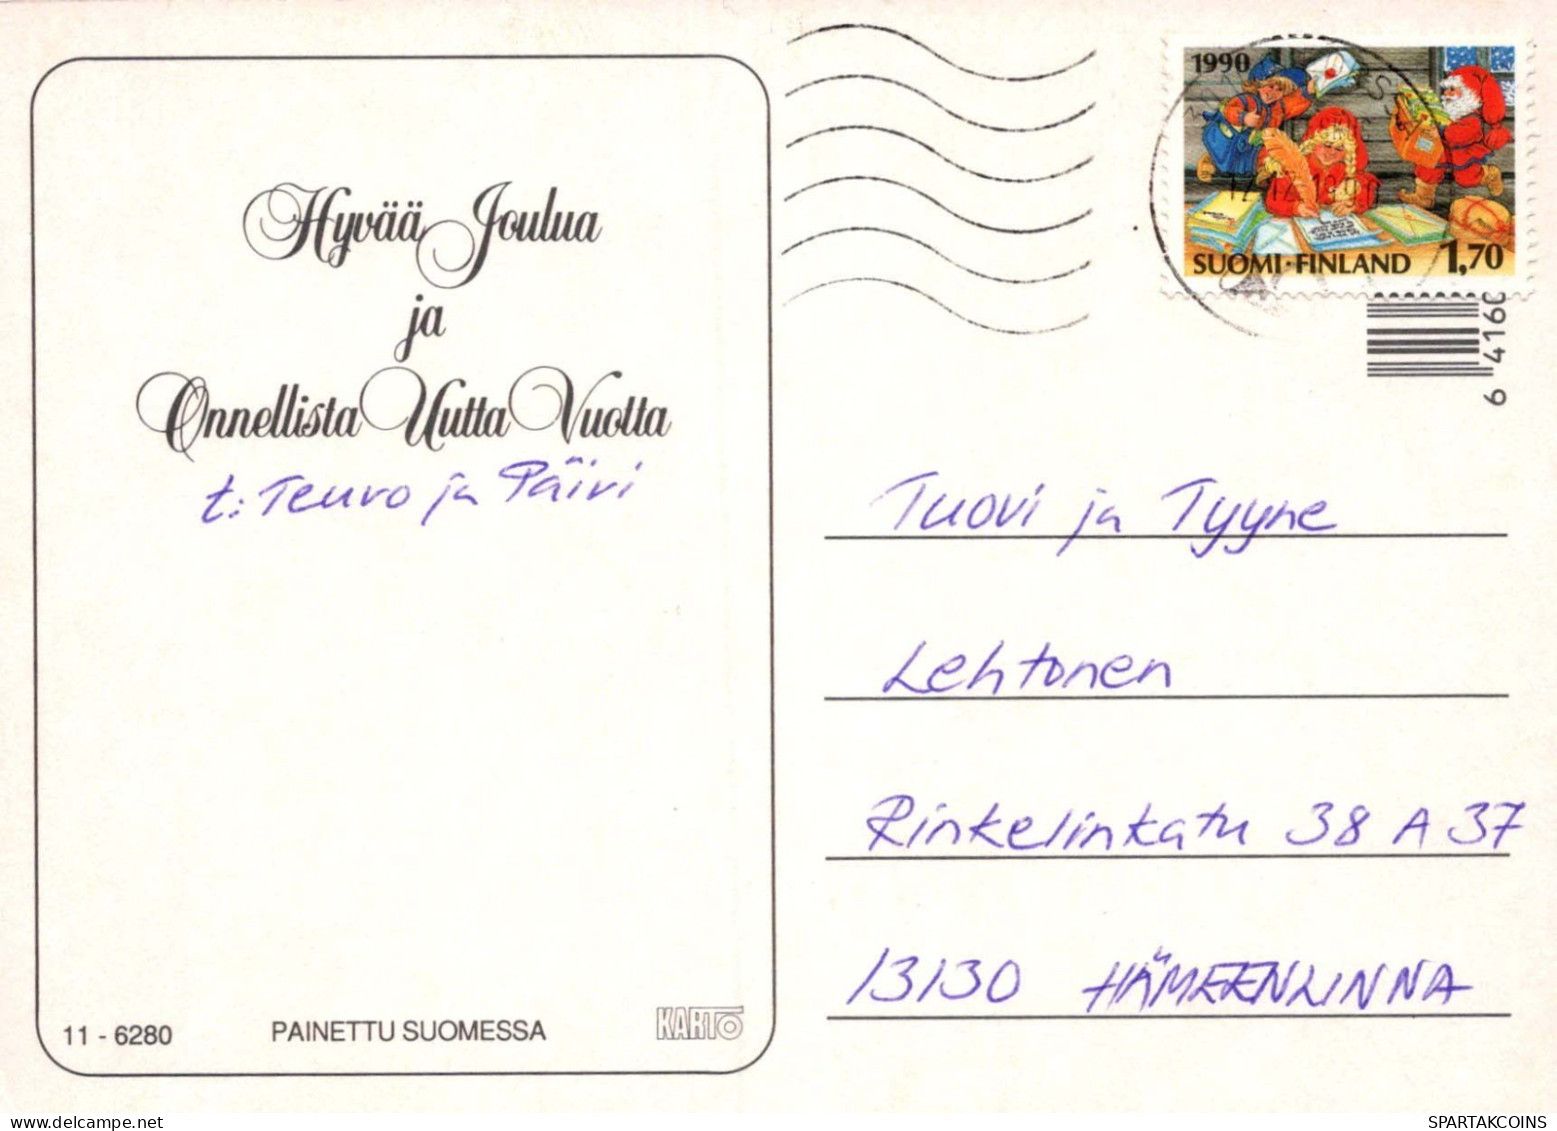 Hyvää Joulua
ja
Onnellista Uutta Vuotta
t: Teuvo ja Päivi
11 - 6280
PAINETTU SUOMESSA
KARTO
1990
SUOMI·FINLAND 1,70
6 4160
Tuovi ja Tyyne
Lehtonen
Rinkelinkatu 38 A 37
13130 HÄMEENLINNA
SPARTAKCOINS